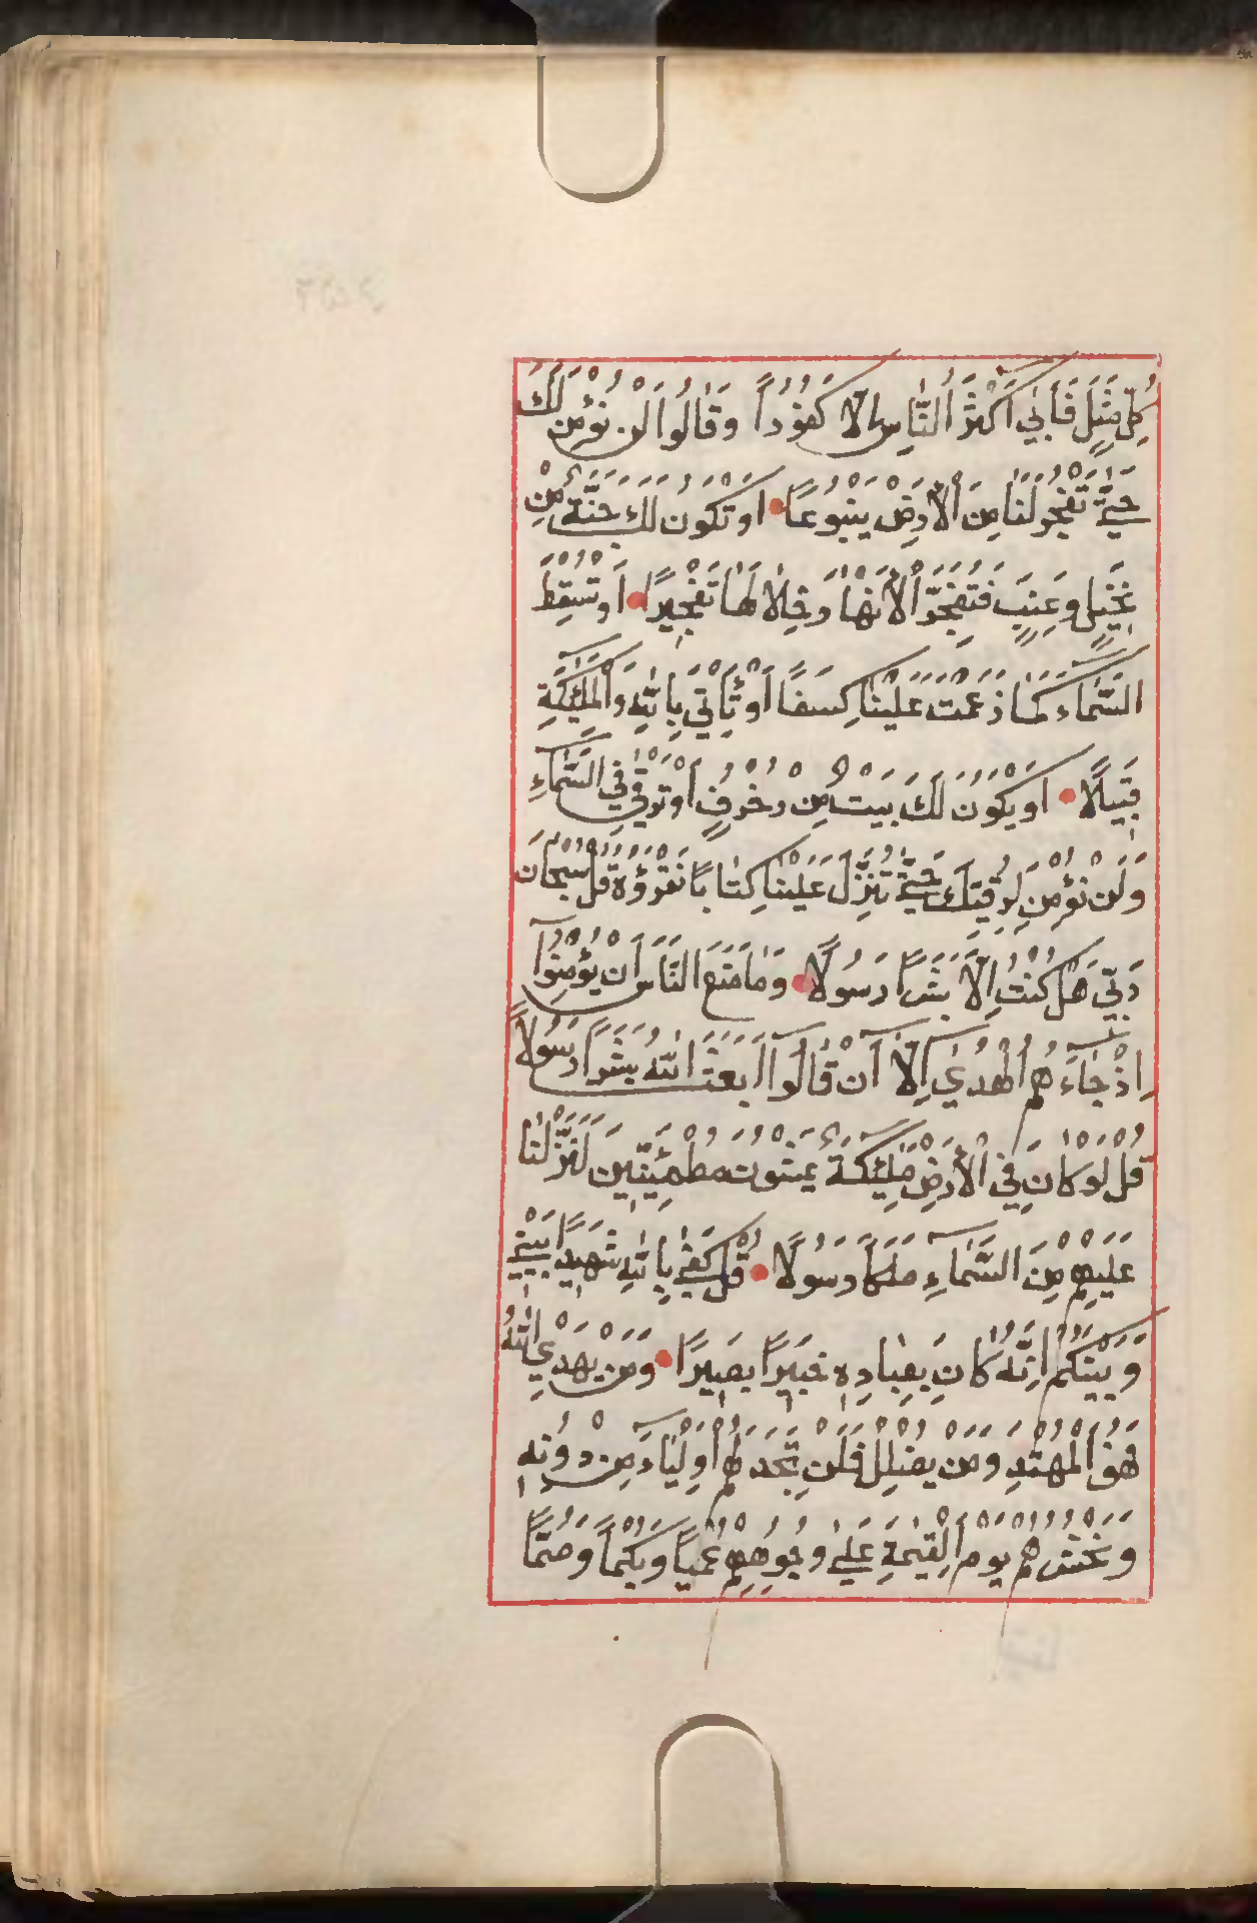 كُلِّ مَثَلٍ فَأَبٰي أَكْثَرُ النَّاسِ إِلَّا كَفُورًا وَقَالُوا لَنْ نُؤْمِنَ لَكَ
حَتّٰي تَفْجُرَ لَنَا مِنَ الْأَرْضِ يَنْبُوعًا اَوْ تَكُونَ لَكَ جَنَّةٌ مِنْ
نَخِيلٍ وَعِنَبٍ فَتُفَجِّرَ الْأَنْهَارَ خِلَالَهَا تَفْجِيرًا اَوْ تُسْقِطَ
السَّمَاءَ كَمَا زَعَمْتَ عَلَيْنَا كِسَفًا اَوْ تَأْتِيَ بِاللّٰهِ وَالْمَلٰئِكَةِ
قَبِيلًا اَوْ يَكُونَ لَكَ بَيْتٌ مِنْ زُخْرُفٍ اَوْ تَرْقٰي فِي السَّمَاءِ
وَلَنْ نُؤْمِنَ لِرُقِيِّكَ حَتّٰي تُنَزِّلَ عَلَيْنَا كِتَابًا نَقْرَؤُهُ قُلْ سُبْحَانَ
رَبِّي هَلْ كُنْتُ اِلَّا بَشَرًا رَسُولًا وَمَا مَنَعَ النَّاسَ اَنْ يُؤْمِنُوا
اِذْ جَاءَهُمُ الْهُدٰي اِلَّا اَنْ قَالُوا اَبَعَثَ اللّٰهُ بَشَرًا رَسُولًا
قُلْ لَوْ كَانَ فِي الْأَرْضِ مَلٰئِكَةٌ يَمْشُونَ مُطْمَئِنِّينَ لَنَزَّلْنَا
عَلَيْهِمْ مِنَ السَّمَاءِ مَلَكًا رَسُولًا قُلْ كَفٰي بِاللّٰهِ شَهِيدًا بَيْنِي
وَبَيْنَكُمْ اِنَّهُ كَانَ بِعِبَادِهِ خَبِيرًا بَصِيرًا وَمَنْ يَهْدِي اللّٰهُ
فَهُوَ الْمُهْتَدِ وَمَنْ يُضْلِلْ فَلَنْ تَجِدَ لَهُمْ اَوْلِيَاءَ مِنْ دُونِهِ
وَنَحْشُرُهُمْ يَوْمَ الْقِيٰمَةِ عَلٰي وُجُوهِهِمْ عُمْيًا وَبُكْمًا وَصُمًّا